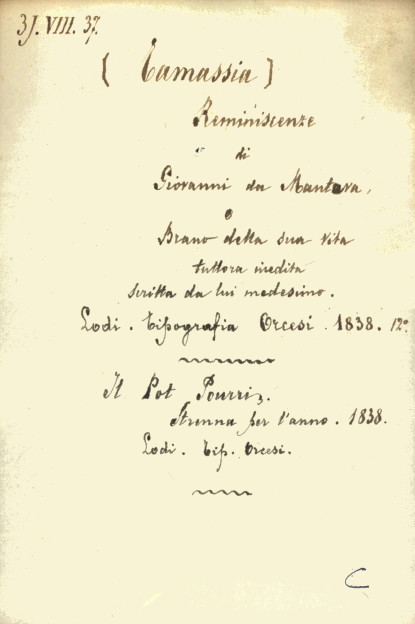 3J. VIII. 37.
( Tamassia )
Reminiscenze
di
Giovanni da Mantova,
o
Brano della sua vita
tuttora inedita
scritta da lui medesimo.
Lodi. Tipografia Orcesi 1838. 12º
Il Pot Pourri,
Strenna per l'anno. 1838.
Lodi. Tip. Orcesi.
C